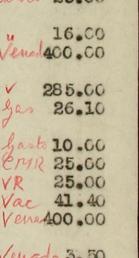 16.00
Venado 400.00
V 285.00
Gas 26.10
Gasto 10.00
EMR 25.00
VR 25.00
Vac 41.40
Venado 400.00
Venado 3.50